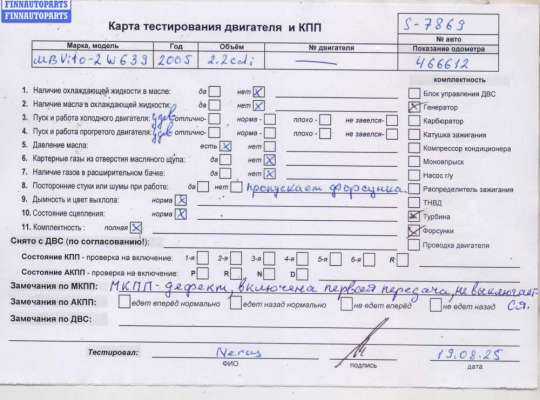 FINNAUTOPARTS
FINNAUTOPARTS
Карта тестирования двигателя и КПП
S-7869
№ авто
Марка, модель Год Объём № двигателя Показание одометра
MB Vito-2 W639 2005 2.2cdi — 466612
комплектность
1. Наличие охлаждающей жидкости в масле: да нет X
Блок управления ДВС
2. Наличие масла в охлаждающей жидкости: да нет X
Генератор
3. Пуск и работа холодного двигателя: удов отлично- норма - плохо - не завелся-
Карбюратор
4. Пуск и работа прогретого двигателя: удов отлично- норма - плохо - не завелся-
Катушка зажигания
5. Давление масла: есть X нет
Компрессор кондиционера
6. Картерные газы из отверстия масляного щупа: да нет
Моновпрыск
7. Наличие газов в расширительном бачке: да нет
Насос г/у
8. Посторонние стуки или шумы при работе: да нет пропускает форсунка.
Распределитель зажигания
9. Дымность и цвет выхлопа: норма X
ТНВД
10. Состояние сцепления: норма X
Турбина
11. Комплектность : полная X
Форсунки
Снято с ДВС (по согласованию!):
Проводка двигателя
Состояние КПП - проверка на включение: 1-я 2-я 3-я 4-я 5-я 6-я R
Состояние АКПП - проверка на включение: P R N D
Замечания по МКПП: МКПП-дефект, включена первой передача, не выключает-
ся.
Замечания по АКПП: едет вперёд нормально едет назад нормально не едет вперёд не едет назад
Замечания по ДВС:
Тестировал: 19.08.25
ФИО подпись дата